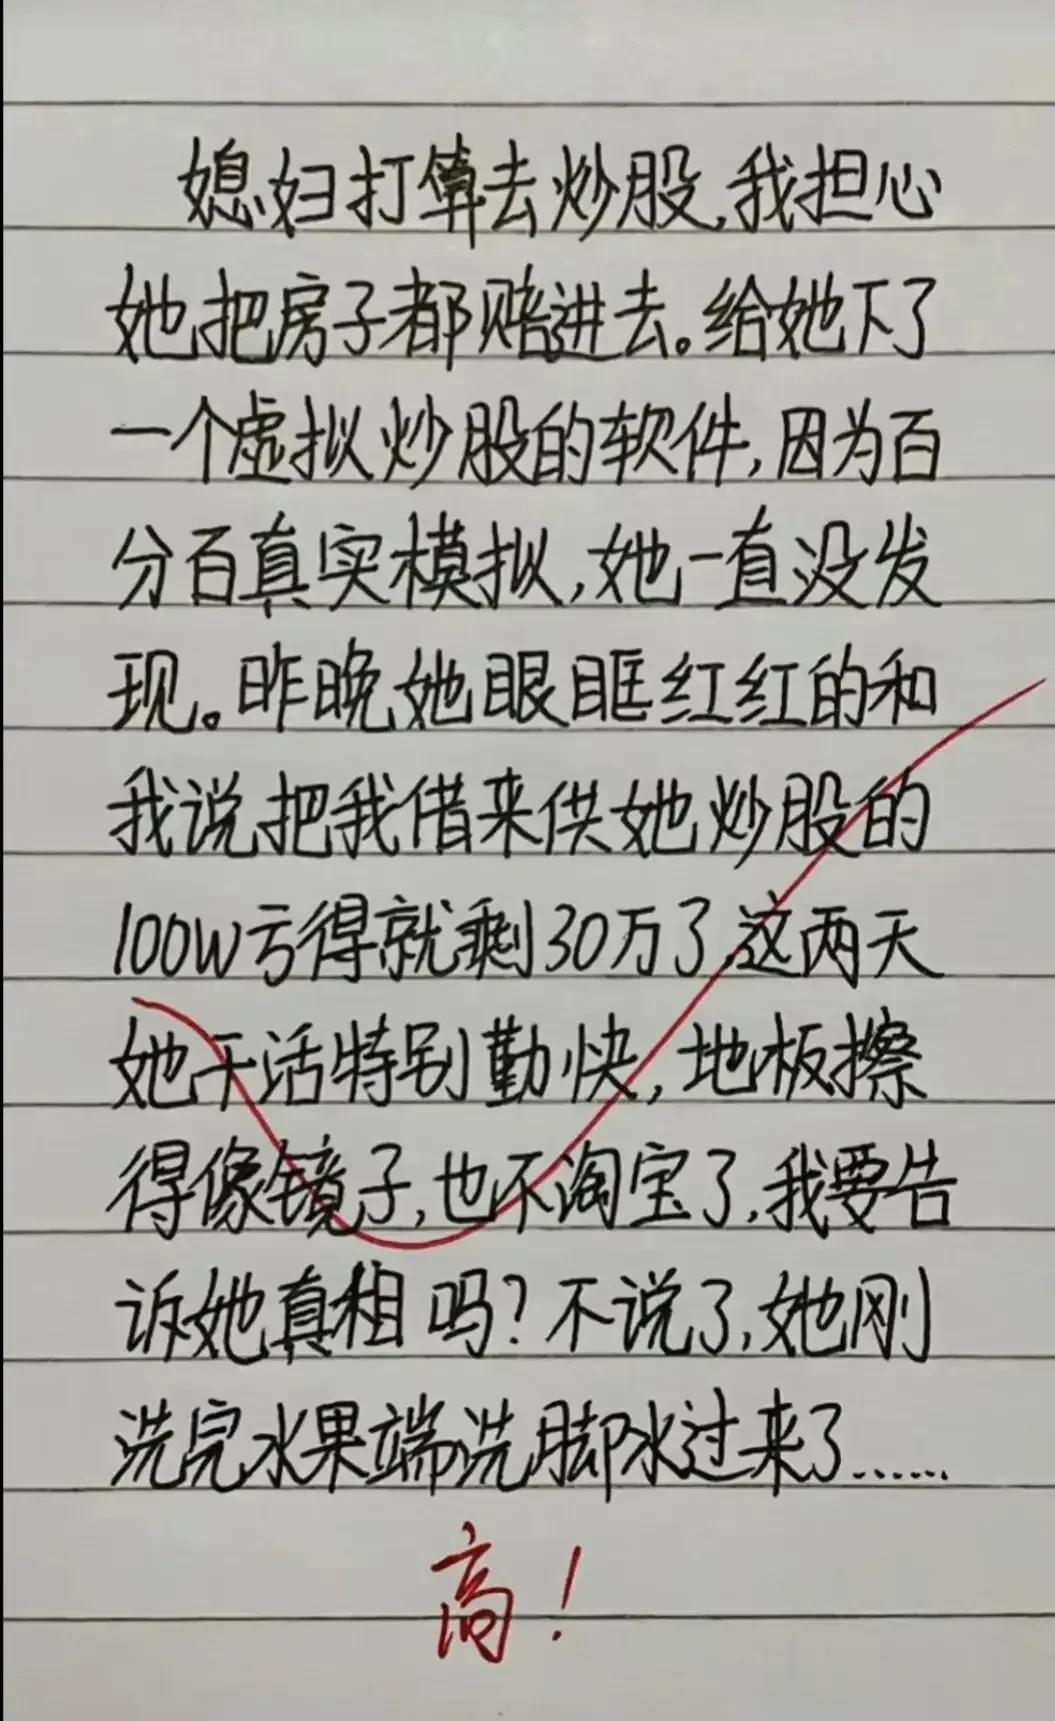 媳妇打算去炒股,我担心
她把房子都赔进去。给她下了
一个虚拟炒股的软件,因为百
分百真实模拟,她一直没发
现。昨晚她眼眶红红的和
我说把我借来供她炒股的
100W亏得就剩30万了,这两天
她干活特别勤快,地板擦
得像镜子,也不淘宝了,我要告
诉她真相吗?不说了,她刚
洗完水果端洗脚水过来了……
高!